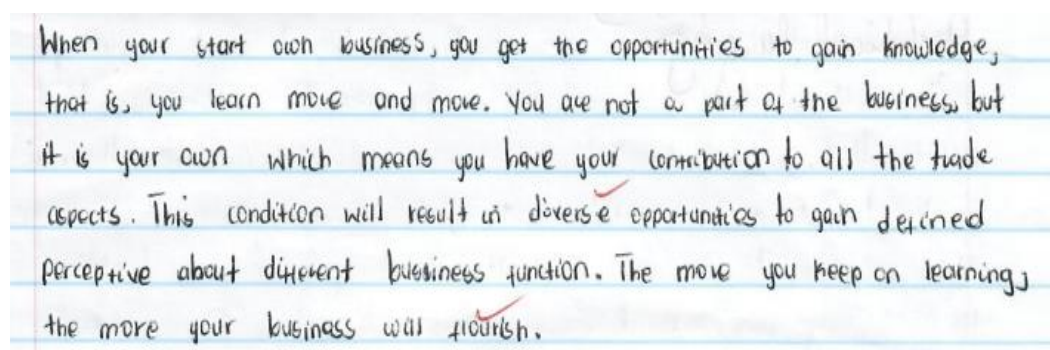 When your start own business, you get the opportunities to gain knowledge,
that is, you learn more and more. You are not a part of the business, but
it is your own which means you have your contribution to all the trade
aspects. This condition will result in diverse opportunities to gain defined
perceptive about different bussiness function. The more you keep on learning,
the more your business will flourish.